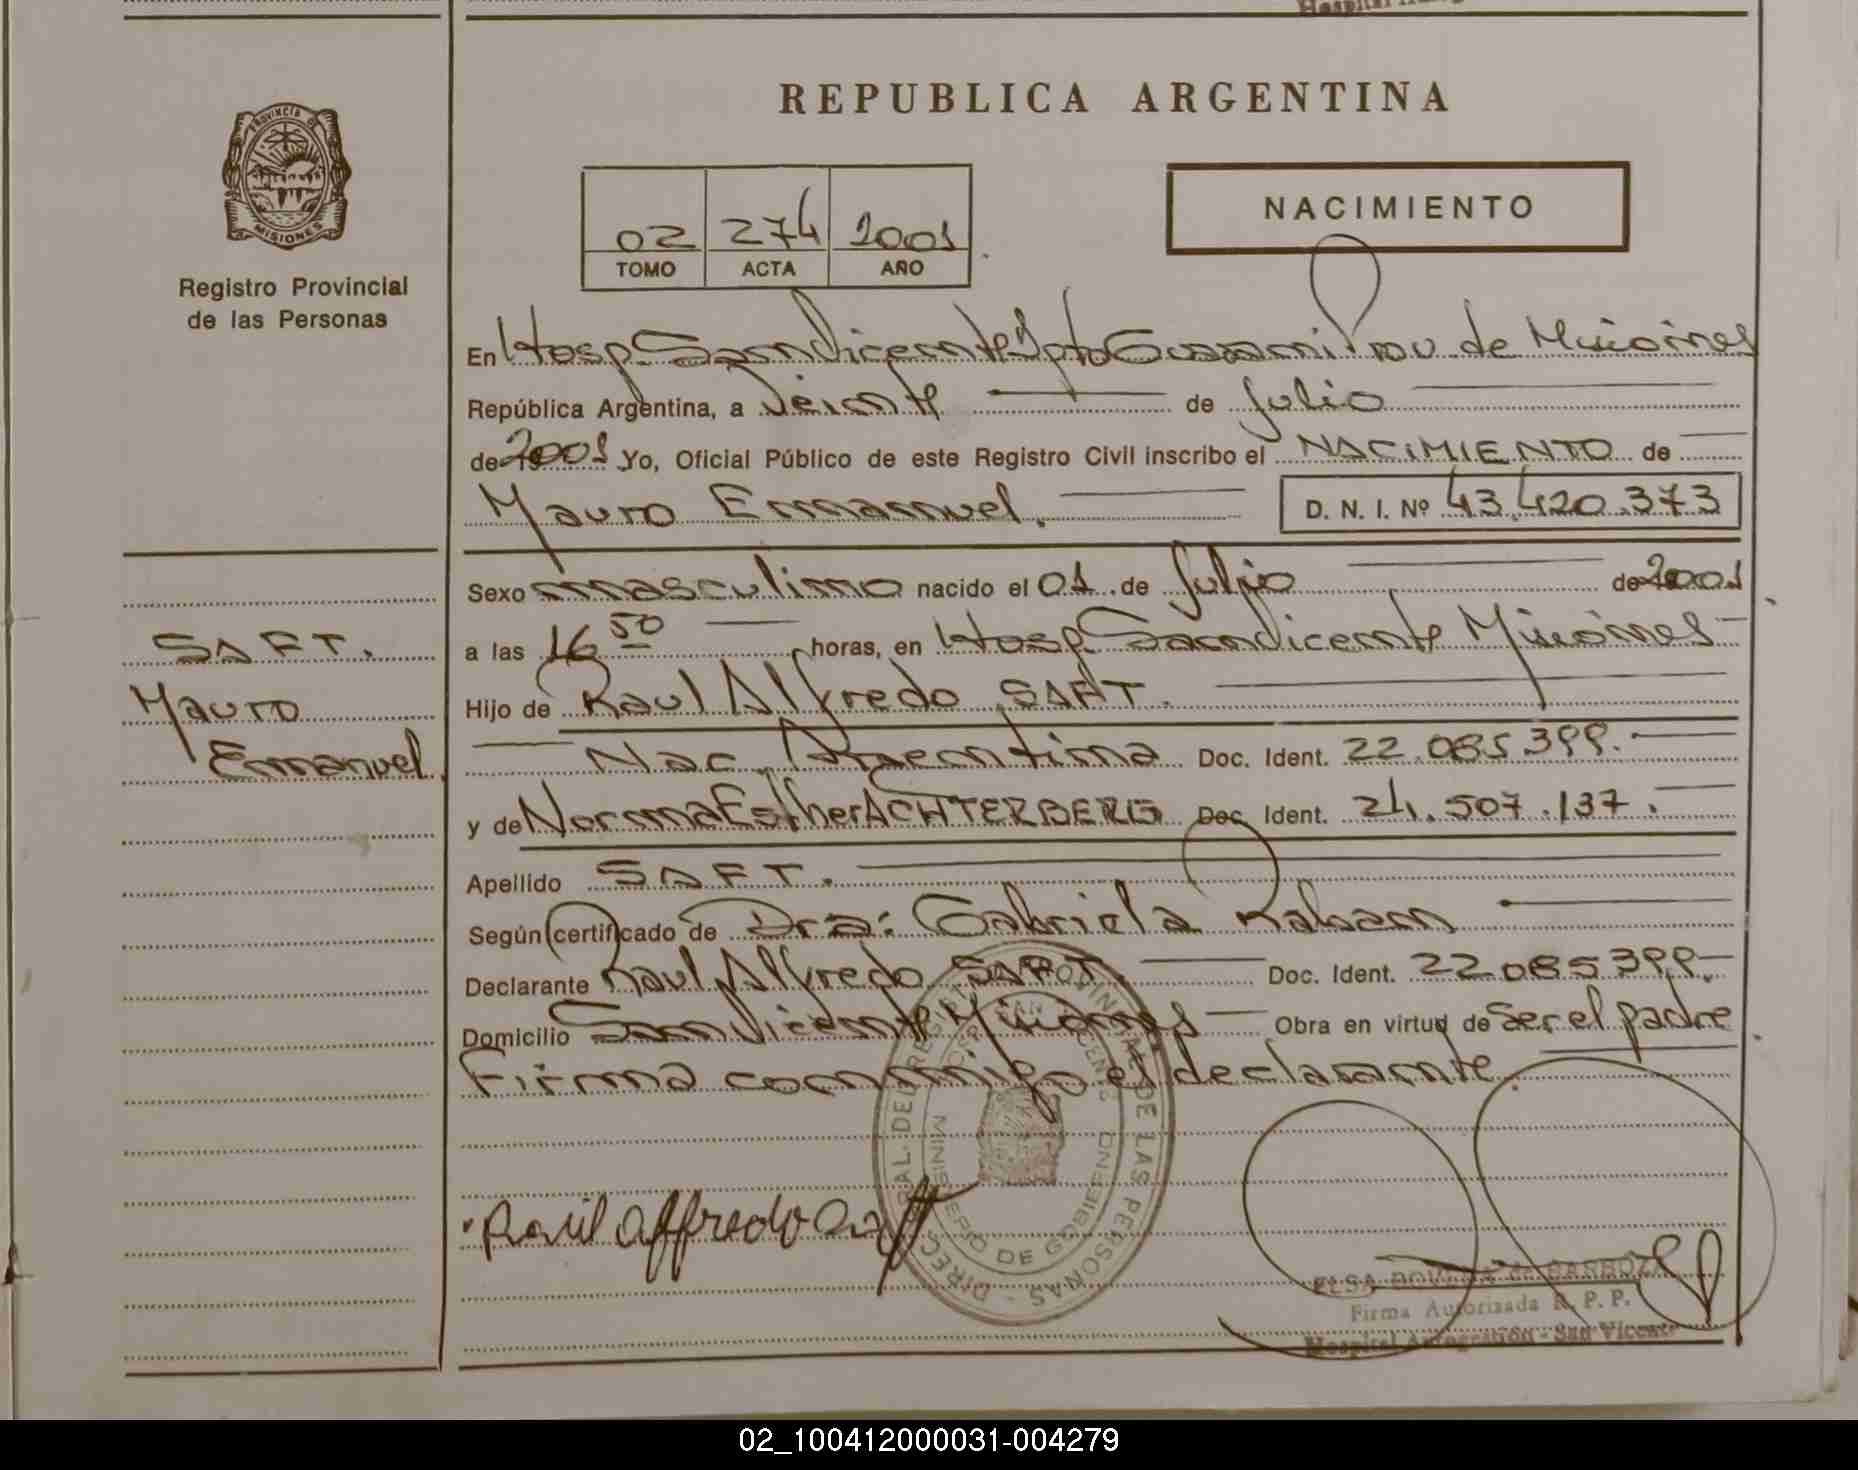 REPUBLICA ARGENTINA
PROVINCIA DE
MISIONES
Registro Provincial
de las Personas
02 274 2001
TOMO ACTA AÑO
NACIMIENTO
En Hosp. San Vicente Dpto Guarani Prov. de Misiones
República Argentina, a Veinte de Julio
de 2001 Yo, Oficial Público de este Registro Civil inscribo el NACIMIENTO de
Mauro Emanuel. D. N. I. Nº 43.420.373
Sexo masculino nacido el 01 de Julio de 2001
a las 16 50 horas, en Hosp. San Vicente Misiones
Hijo de Raul Alfredo SAFT.
Nac. Argentina Doc. Ident. 22.085.399.
y de Norma Esther ACHTERBERG Doc. Ident. 24.507.137.
Apellido SAFT.
Según certificado de Dra: Gabriela
Declarante Raul Alfredo SAFT. Doc. Ident. 22.085.399.
Domicilio San Vicente Misiones Obra en virtud de Ser el padre
Firma conmigo el declarante.
SAFT.
Mauro
Emanuel.
Raúl Alfredo Saft
DIREC. GRAL. DEL REG. PROVINCIAL DE LAS PERSONAS
MINISTERIO DE GOBIERNO
ELSA de BARBOZA
Firma Autorizada R. P. P.
Hospital Autogestión - San Vicente
02_100412000031-004279